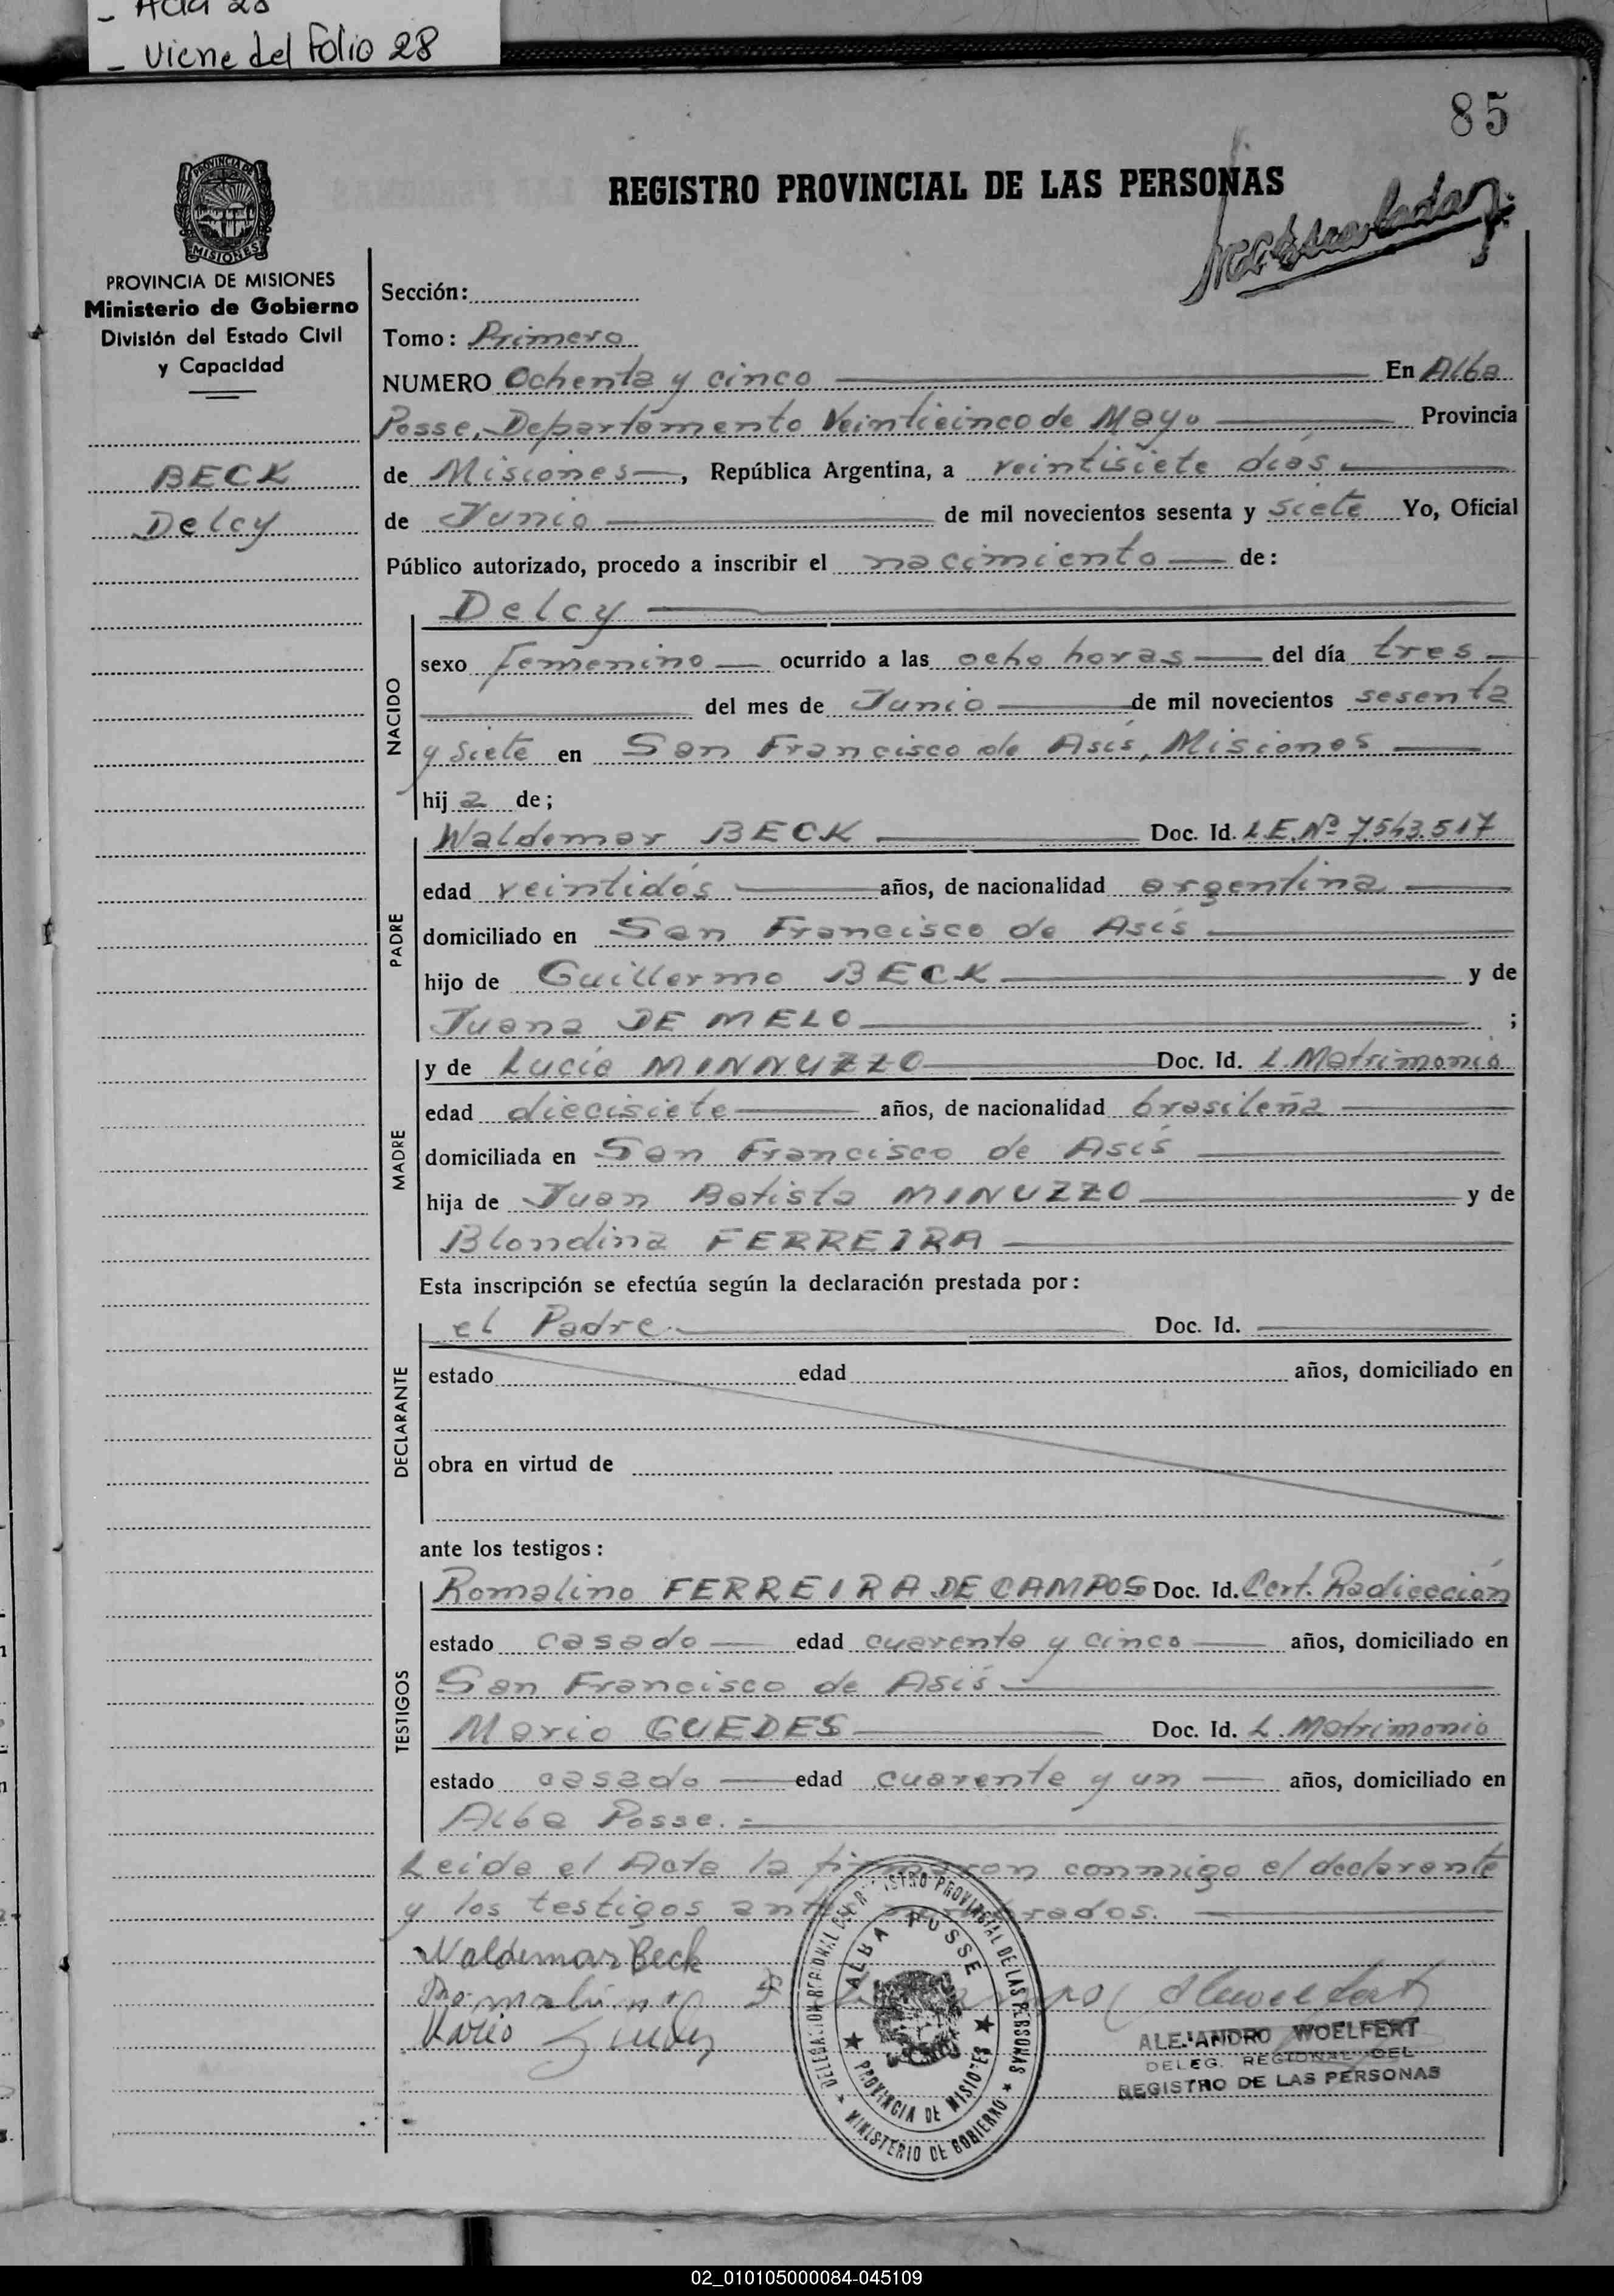 - Acta 28
- Viene del Folio 28
85
REGISTRO PROVINCIAL DE LAS PERSONAS
PROVINCIA DE
MISIONES
PROVINCIA DE MISIONES
Ministerio de Gobierno
División del Estado Civil
y Capacidad
BECK
Delcy
Sección:
Tomo: Primero
NUMERO Ochenta y cinco En Alba
Posse, Departamento Veinticinco de Mayo Provincia
de Misiones, República Argentina, a veintisiete días
de Junio de mil novecientos sesenta y siete Yo, Oficial
Público autorizado, procedo a inscribir el nacimiento de:
NACIDO
Delcy
sexo femenino ocurrido a las ocho horas del día tres
del mes de Junio de mil novecientos sesenta
y siete en San Francisco de Asís, Misiones
hij a de;
PADRE
Waldemar BECK Doc. Id. L.E.Nº 7.543.517
edad veintidós años, de nacionalidad argentina
domiciliado en San Francisco de Asís
hijo de Guillermo BECK y de
Juana DE MELO ;
MADRE
y de Lucía MINNUZZO Doc. Id. L. Matrimonio
edad diecisiete años, de nacionalidad brasileña
domiciliada en San Francisco de Asís
hija de Juan Batista MINUZZO y de
Blondina FERREIRA
Esta inscripción se efectúa según la declaración prestada por:
DECLARANTE
el Padre. Doc. Id.
estado edad años, domiciliado en
obra en virtud de
ante los testigos:
TESTIGOS
Romalino FERREIRA DE CAMPOS Doc. Id. Cert. Radicación
estado casado edad cuarenta y cinco años, domiciliado en
San Francisco de Asís
Mario GUEDES Doc. Id. L. Matrimonio
estado casado edad cuarenta y un años, domiciliado en
Alba Posse.
Leída el Acta la firmaron conmigo el declarante
y los testigos
Waldemar Beck
Mario
DELEGACION REGIONAL DEL REGISTRO PROVINCIAL DE LAS PERSONAS
MINISTERIO DE GOBIERNO
ALBA POSSE
PROVINCIA DE MISIONES
ALEJANDRO WOELFERT
DELEG. REGIONAL DEL
REGISTRO DE LAS PERSONAS
02_010105000084-045109